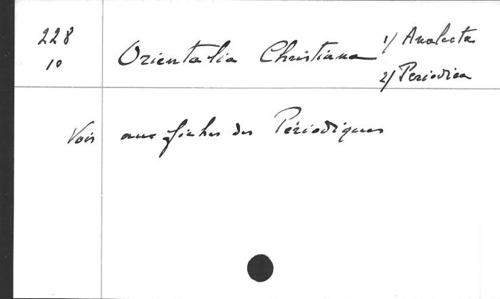 228 Orientalia Christiana 1/ Analecta
10 2/ Periodica
Vois aux fiches des Périodiques